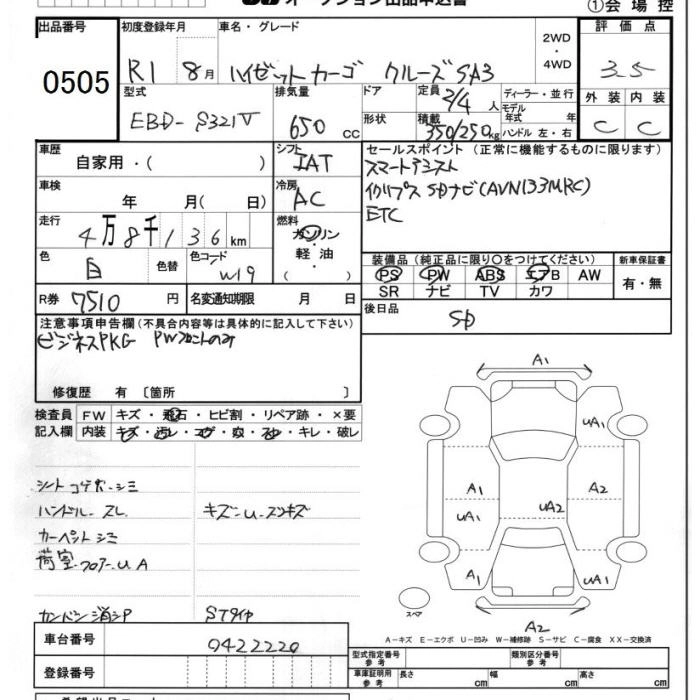 オークション出品申込書
①会場控
出品番号
0505
初度登録年月
R1 8月
車名・グレード
ハイゼットカーゴ クルーズSA3
2WD
・
4WD
評価点
3.5
型式
EBD-S321V
排気量
650 cc
ドア
形状
定員
2/4人
積載
350/250kg
ディーラー・並行
モデル
年式 年
ハンドル 左・右
外装 内装
C C
車歴
自家用・( )
シフト
IAT
セールスポイント (正常に機能するものに限ります)
スマートアシスト
イクリプス SDナビ(AVN133MRC)
ETC
車検
年 月( 日)
冷房
AC
走行
4万8千136km
燃料
ガソリン
・
軽油・
( )
色
白
色替
色コード
W19
装備品 (純正品に限り〇をつけてください)
PS PW ABS エアB AW
SR ナビ TV カワ
新車保証書
有・無
R券 7510円
名変通知期限 月 日
後日品
SD
注意事項申告欄(不具合内容等は具体的に記入して下さい)
ビジネスPKG PWフロントのみ
修復歴 有 〔箇所 〕
検査員
記入欄
FW キズ・飛石・ヒビ割・リペア跡・×要
内装 キズ・汚レ・コゲ・穴・スレ・キレ・破レ
シートコゲボ-シミ
ハンドル-スレ
キズ-U-スリキズ
カーペットシミ
荷室-フロアーUA
カントンシ消シP
STタイヤ
A1
UA1
A1
A2
UA1
UA2
A1
UA1
スペア
A2
A-キズ E-エクボ U-凹み W-補修跡 S-サビ C-腐食 XX-交換済
車台番号
0422220
登録番号
型式指定番号
参考
類別区分番号
参考
車庫証明用
参考
長さ cm 幅 cm 高さ cm